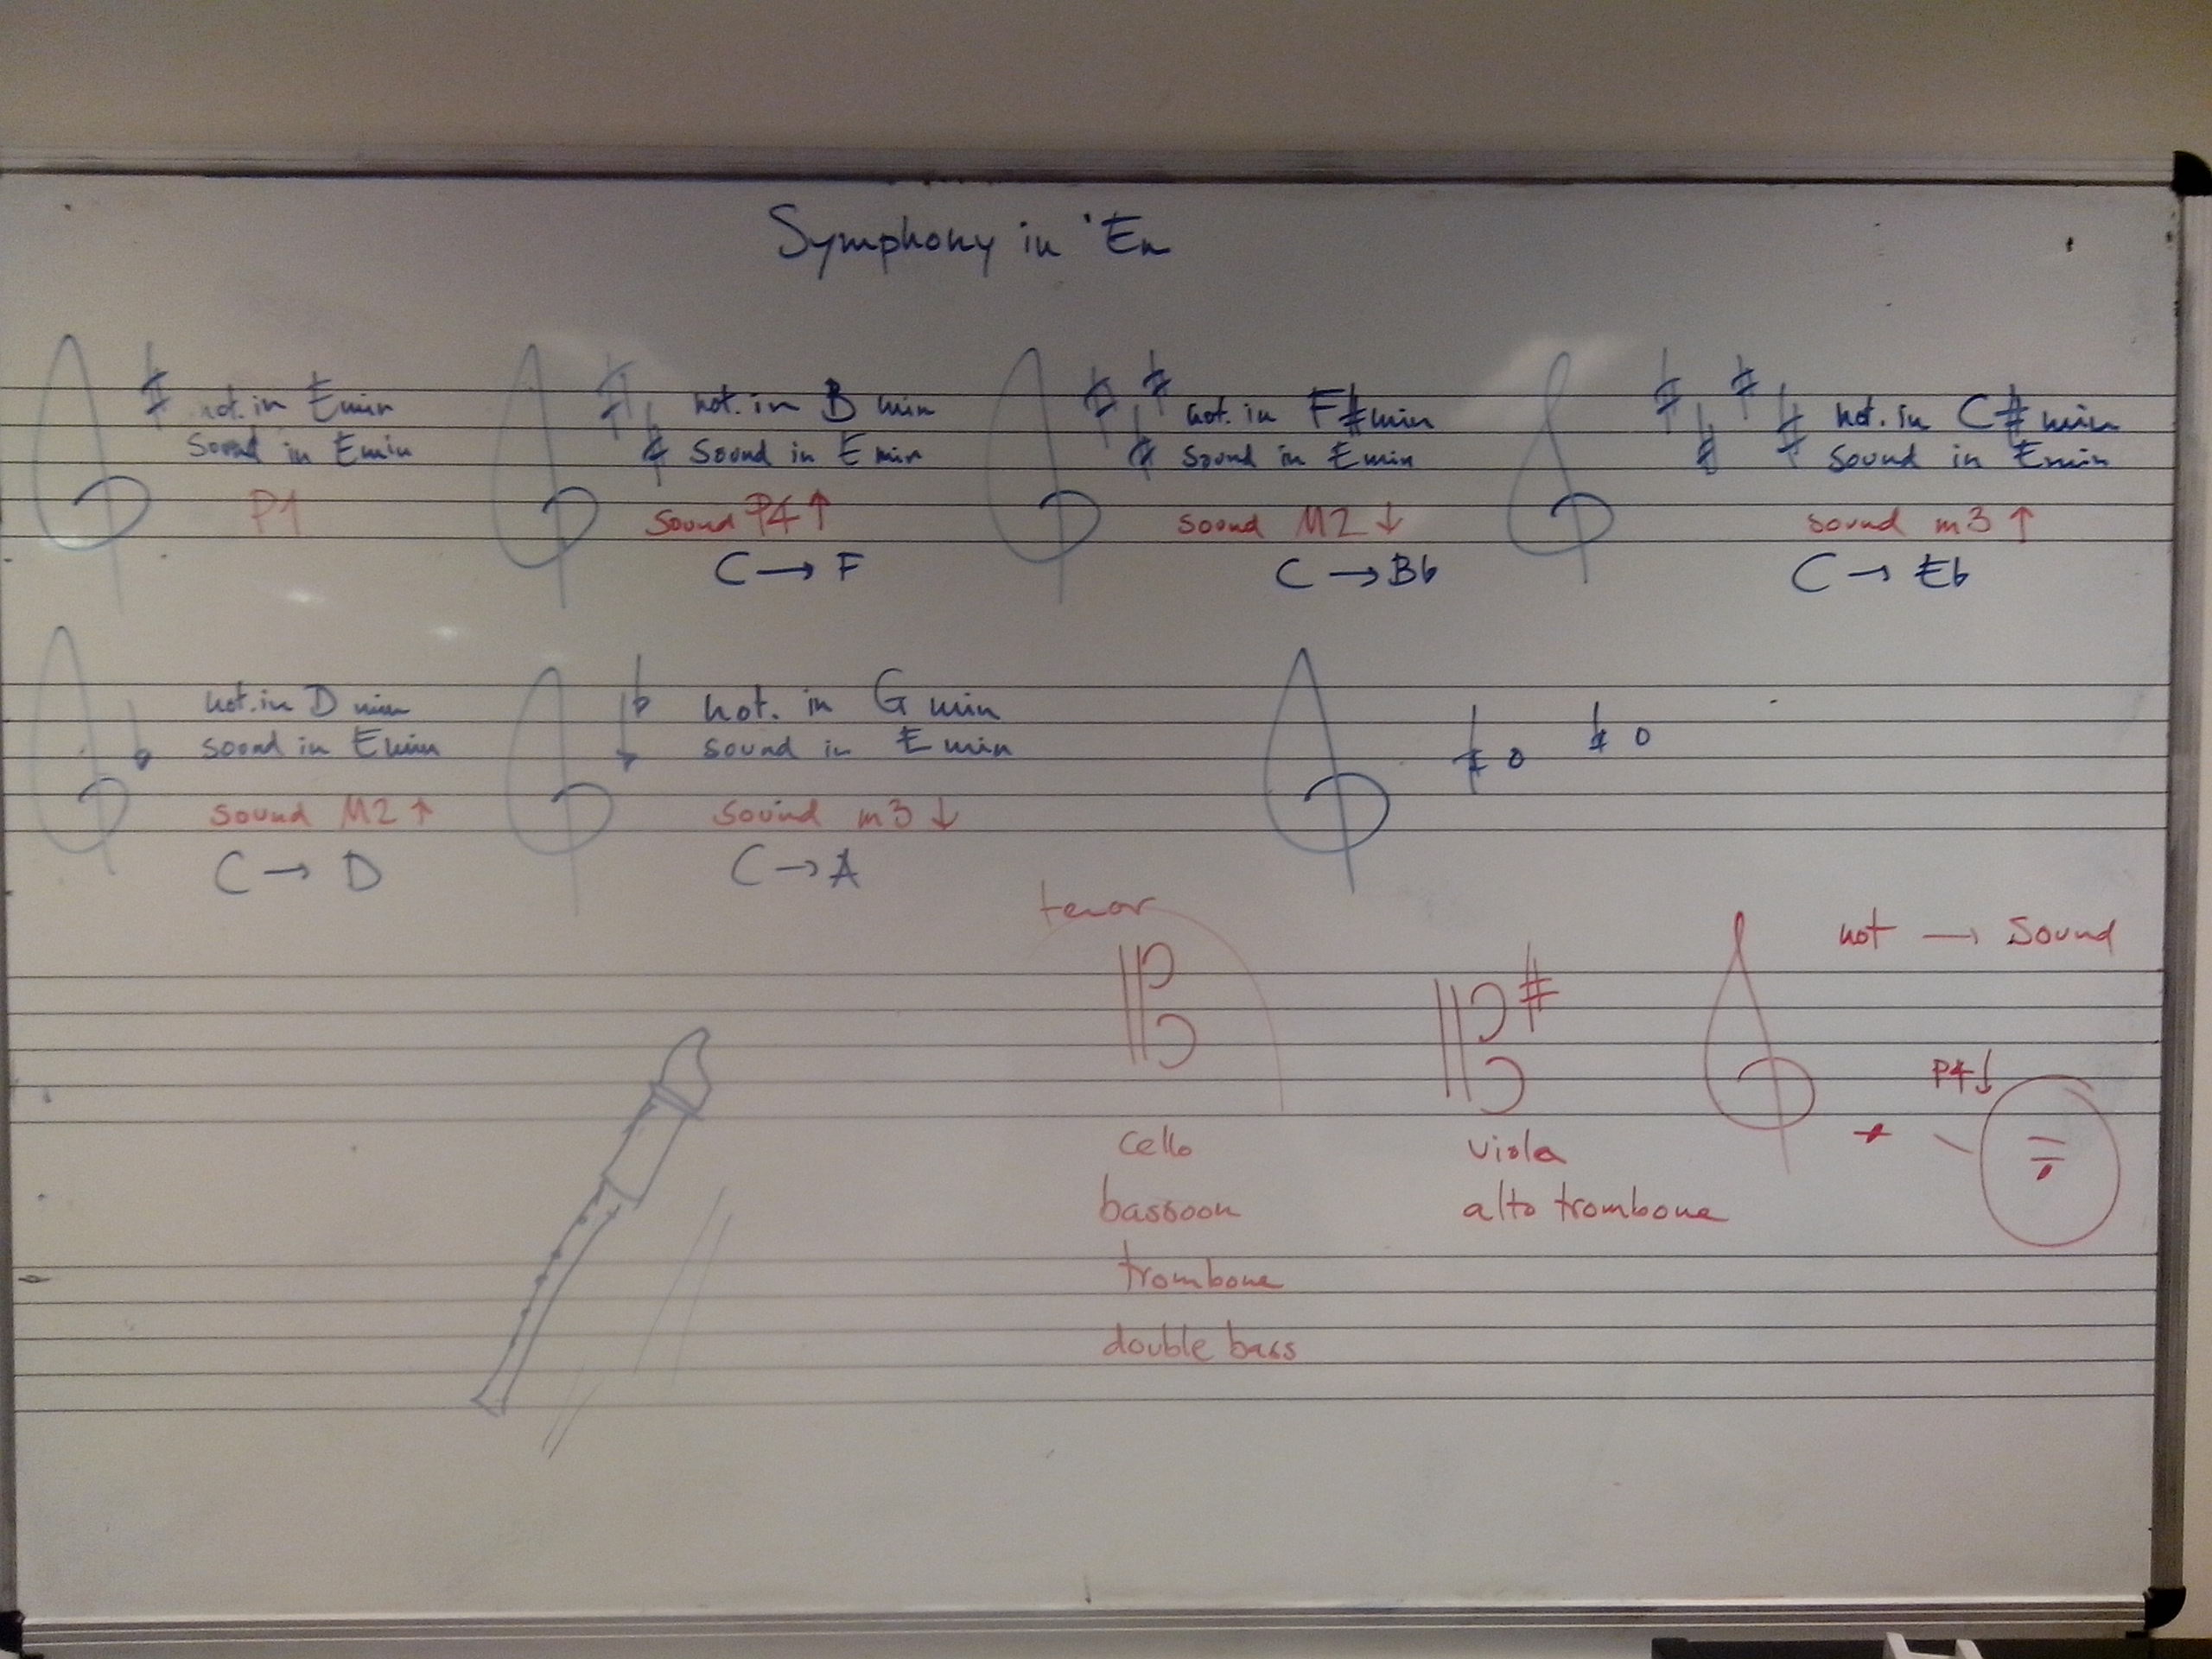 Symphony in Em
not. in Emin
Sound in Emin
P1
not. in B min
Sound in E min
Sound P4 ↑
C → F
not. in F# min
Sound in Emin
sound M2 ↓
C → Bb
not. in C# min
Sound in Emin
sound m3 ↑
C → Eb
not. in D min
sound in Emin
sound M2 ↑
C → D
not. in G min
sound in E min
sound m3 ↓
C → A
tenor
cello
bassoon
trombone
double bass
viola
alto trombone
not → Sound
P4↓